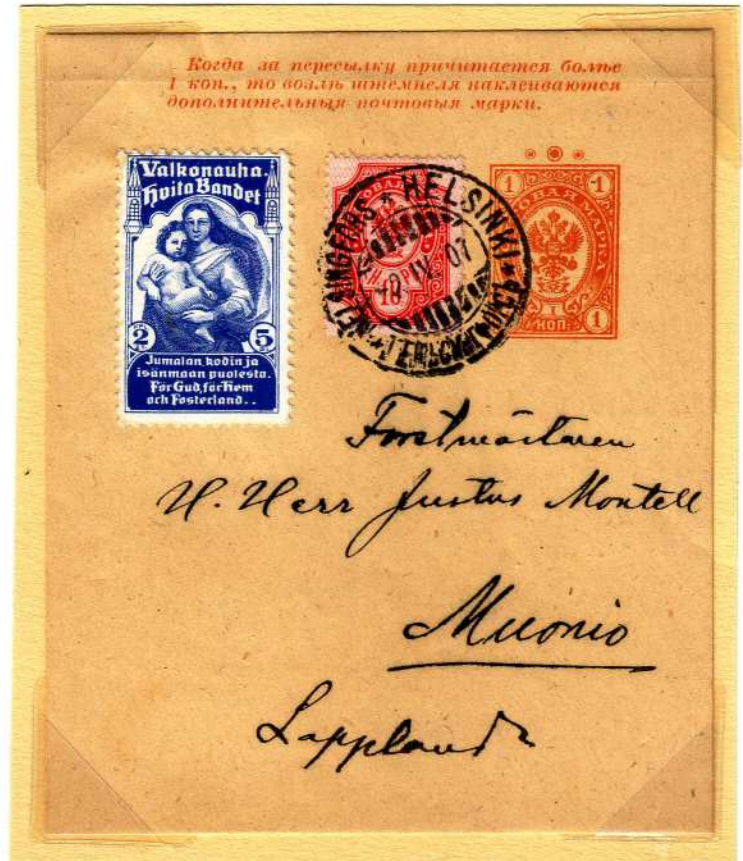 Когда за пересылку причитается болѣе
1 коп., то возлѣ штемпеля наклеиваются
дополнительныя почтовыя марки.
Valkonauha.
Hvita Bandet
2 5
Jumalan, kodin ja
isänmaan puolesta.
För Gud, för Hem
och Fosterland..
10
HELSINGFORS * HELSINKI *
IV. 07
1 1
МАРКА
1
КОП.
1 1
Forstmästaren
H. Herr Justus Montell
Muonio
Lappland